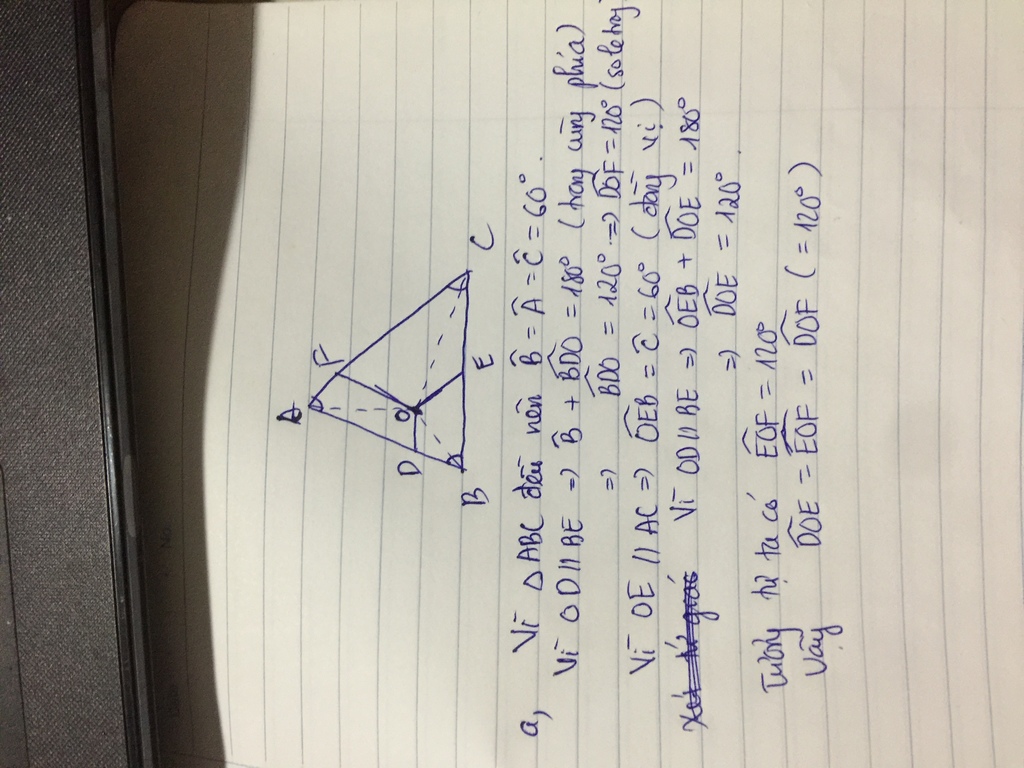 A
F
D
O
B
E
C
a, Vì △ABC đều nên B̂ = Â = Ĉ = 60°.
Vì OD // BE => B̂ + B͡DO = 180° (trong cùng phía)
=> B͡DO = 120° => D͡OF = 120° (so le trong)
Vì OE // AC => O͡EB = Ĉ = 60° (đồng vị)
Vì OD // BE => O͡EB + D͡OE = 180°
=> D͡OE = 120°.
Tương tự ta có E͡OF = 120°
Vậy D͡OE = E͡OF = D͡OF ( = 120°)